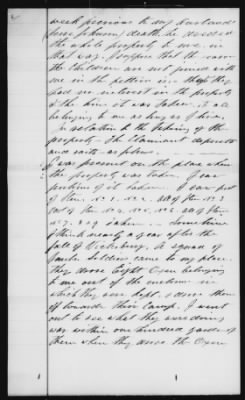 week previous to my husband
death, he deeded
the whole property to me. in
that way I suppose that the reason
the children are not joined with
me in the petition is that they
had no interest in the property
at the time it was taken, it all
belonging to me as long as I live.
In relation to the taking of the
property the Claimant deposeth
and saith as follows.
I was present on the place when
the property was taken. I saw
portions of it taken. I saw part
of Item No 1. &c 2. all of Item No 3
part of Item No 4. No 5. No 6. all of Item
No 7. 8 & 9 taken. Sometime
I think nearly a year after the
fall of Vicksburg, a squad of
Yankee soldiers came to my place.
They drove eight Oxen belonging
to me out of the enclosure in
which they were kept, & drove them
off towards their Camp. I went
out to see what they were doing
was within one hundred yards of
them when they drove the Oxen